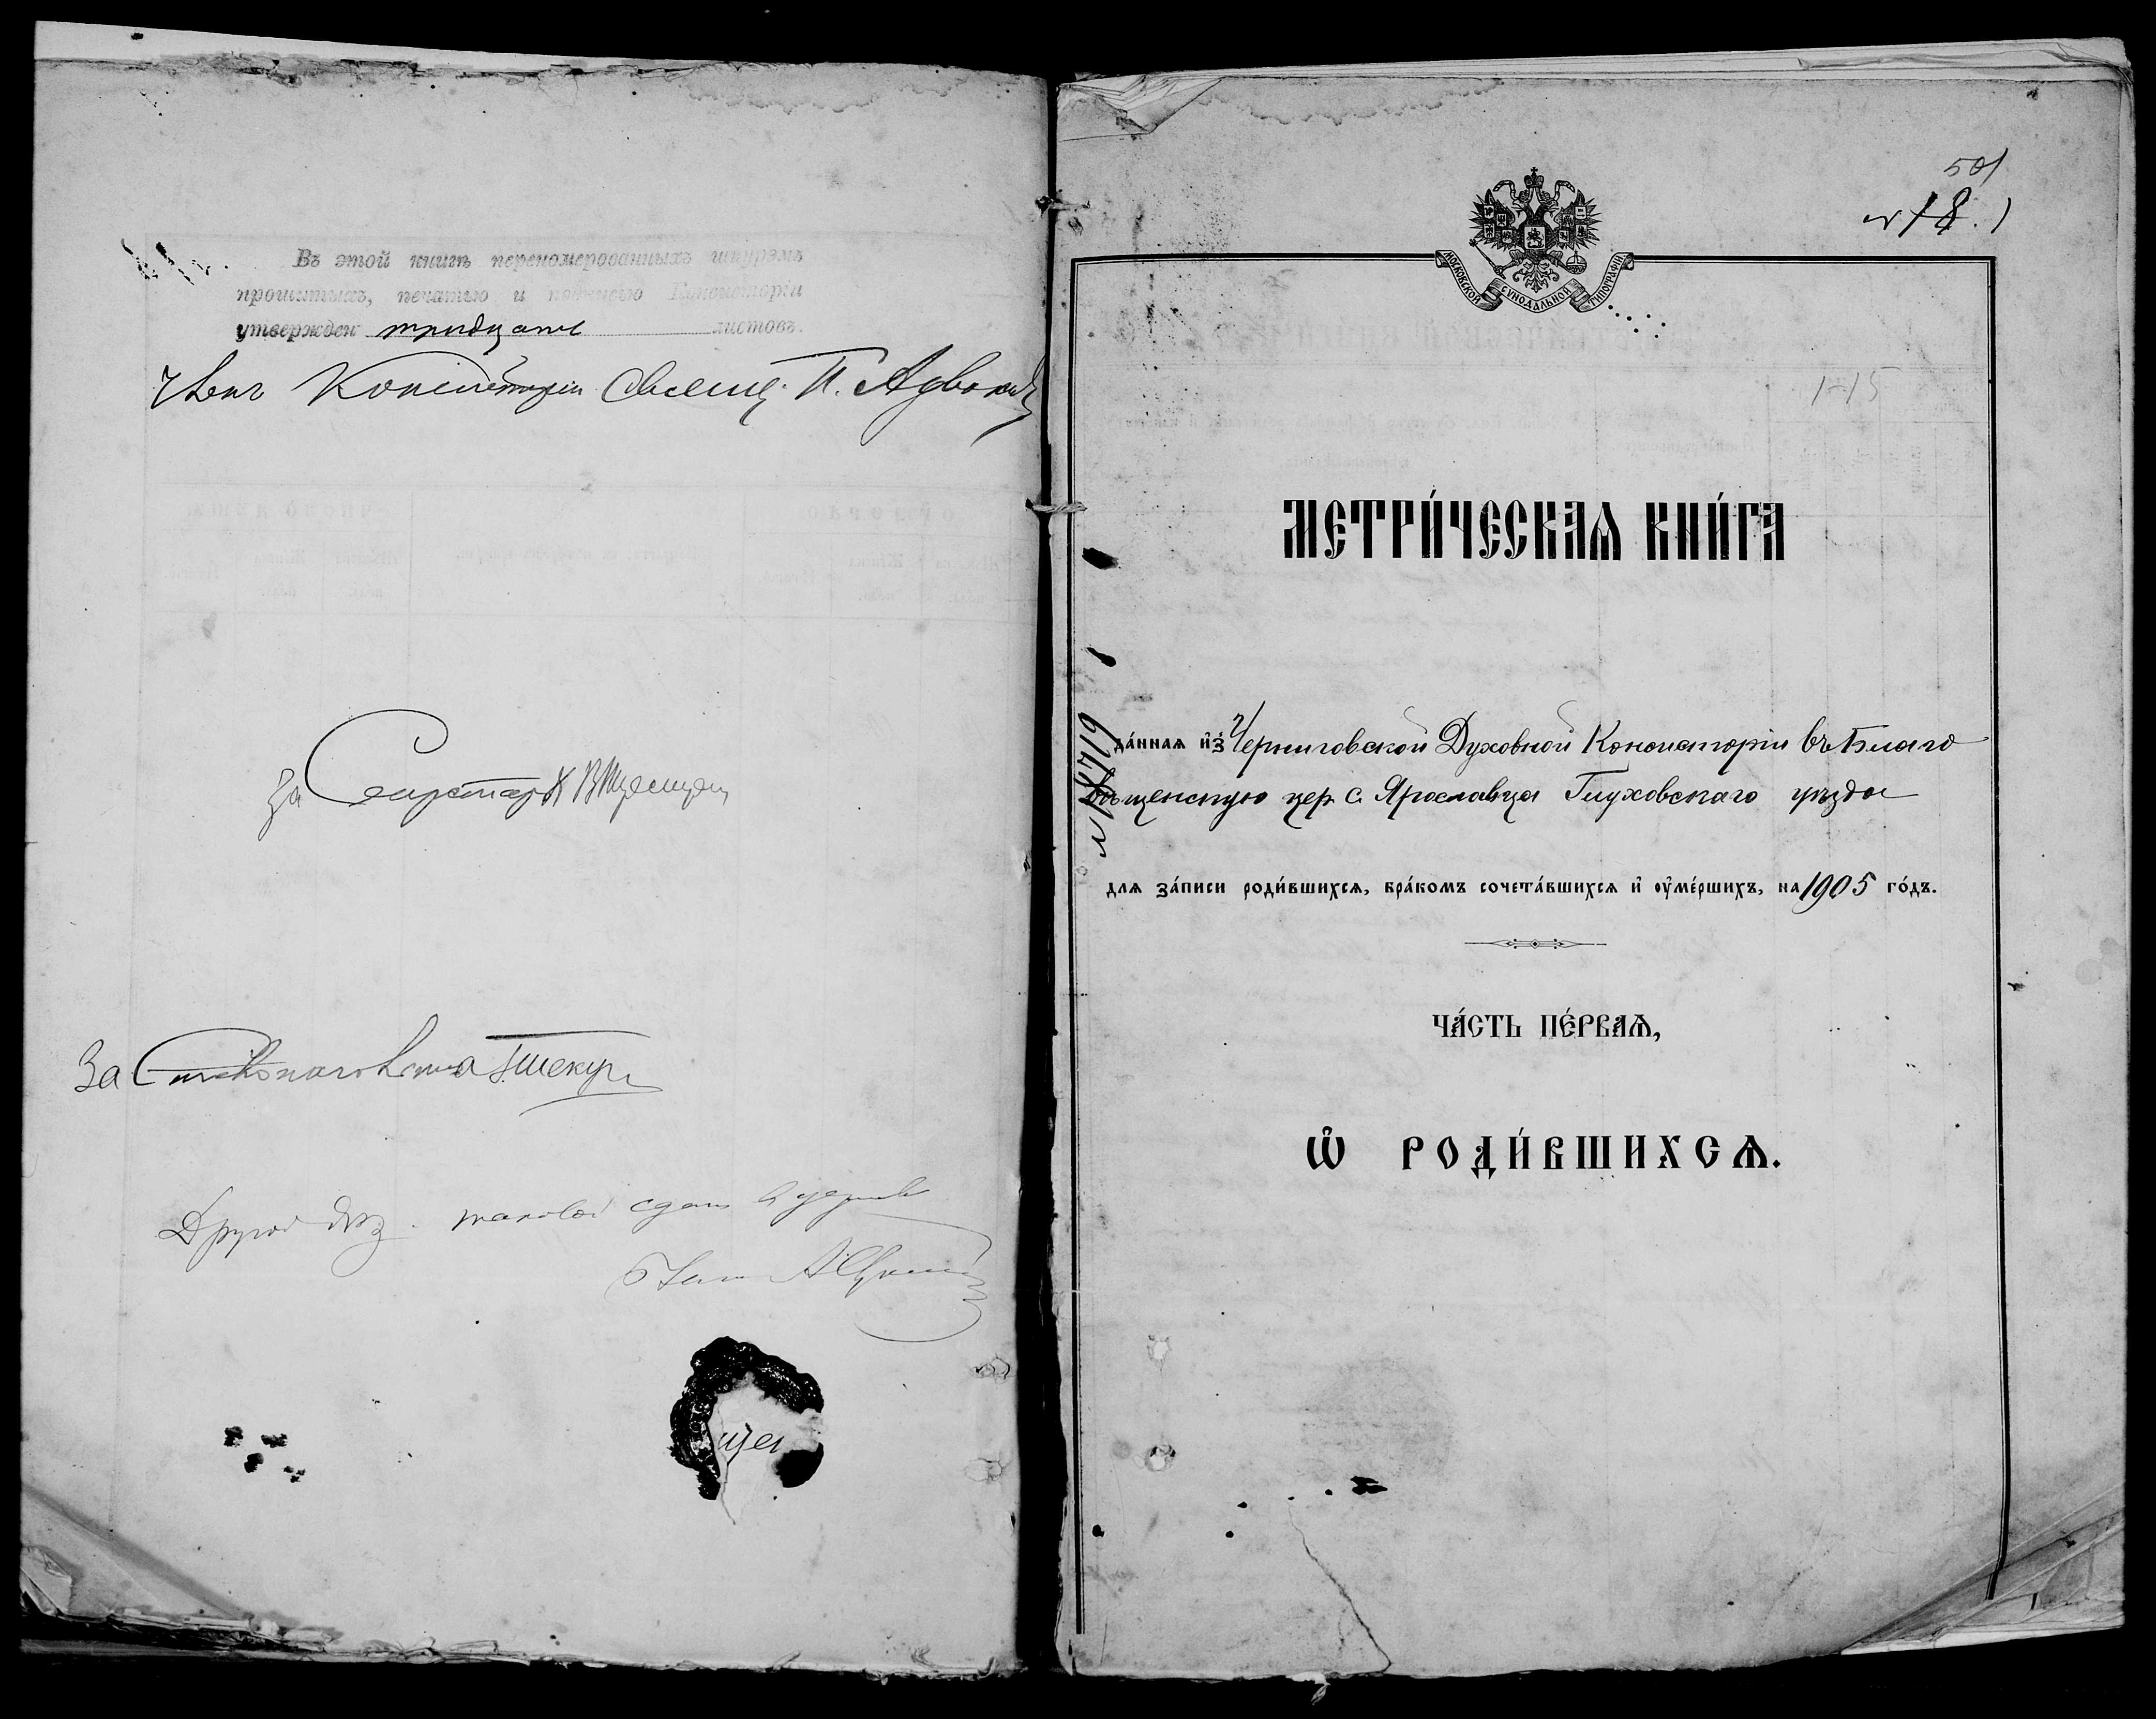 Въ этой книгѣ перенумерованныхъ шнуромъ
прошитыхъ, печатью и подписью Консисторіи
утвержден тридцать листовъ.
Членъ Консисторіи Священ. П.
За Секретаря
За Столоначальника
Другой экз. таковой сданъ в церковь
501
№ 18. 1
МОСКОВСКОЙ СѴНОДАЛЬНОЙ ТИПОГРАФІИ
1-15
МЕТРИ́ЧЕСКАѦ КНИ́ГА
№ 18719
да́ннаѧ и҆з̾ Черниговской Духовной Консисторіи въ Благо
вѣщенскую цер. с. Ярославца Глуховскаго уѣзда
длѧ за́писи роди́вшихсѧ, бра́комъ сочета́вшихсѧ и҆ ᲂу҆ме́ршихъ, на 1905 го́дъ.
ЧА́СТЬ ПЕ́РВАѦ,
Ѽ РОДИ́ВШИХСѦ.